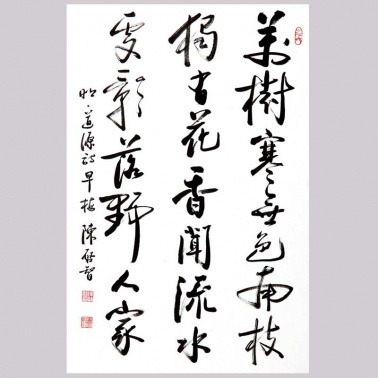 萬樹寒無色南枝
獨有花香聞流水
處影落野人家
明·道源詩早梅 陳啟智